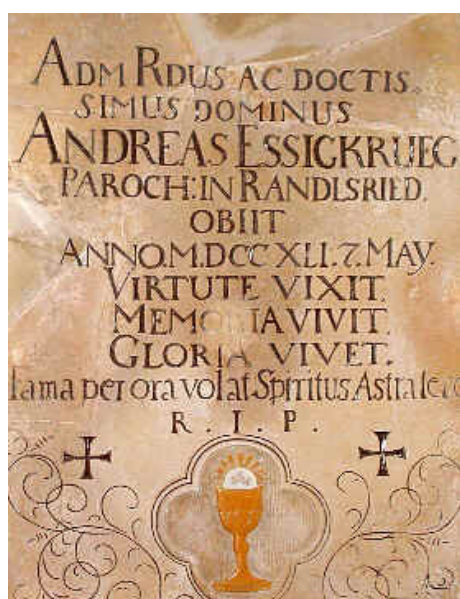 ADM RDUS AC DOCTIS.
SIMUS DOMINUS
ANDREAS ESSICKRUEG
PAROCH: IN RANDLSRIED.
OBIIT
ANNO. M. DCC XLI. 7. MAY.
VIRTUTE VIXIT.
MEMORIA VIVIT.
GLORIA VIVET.
Fama per ora volat Spiritus Astra
R. I. P.